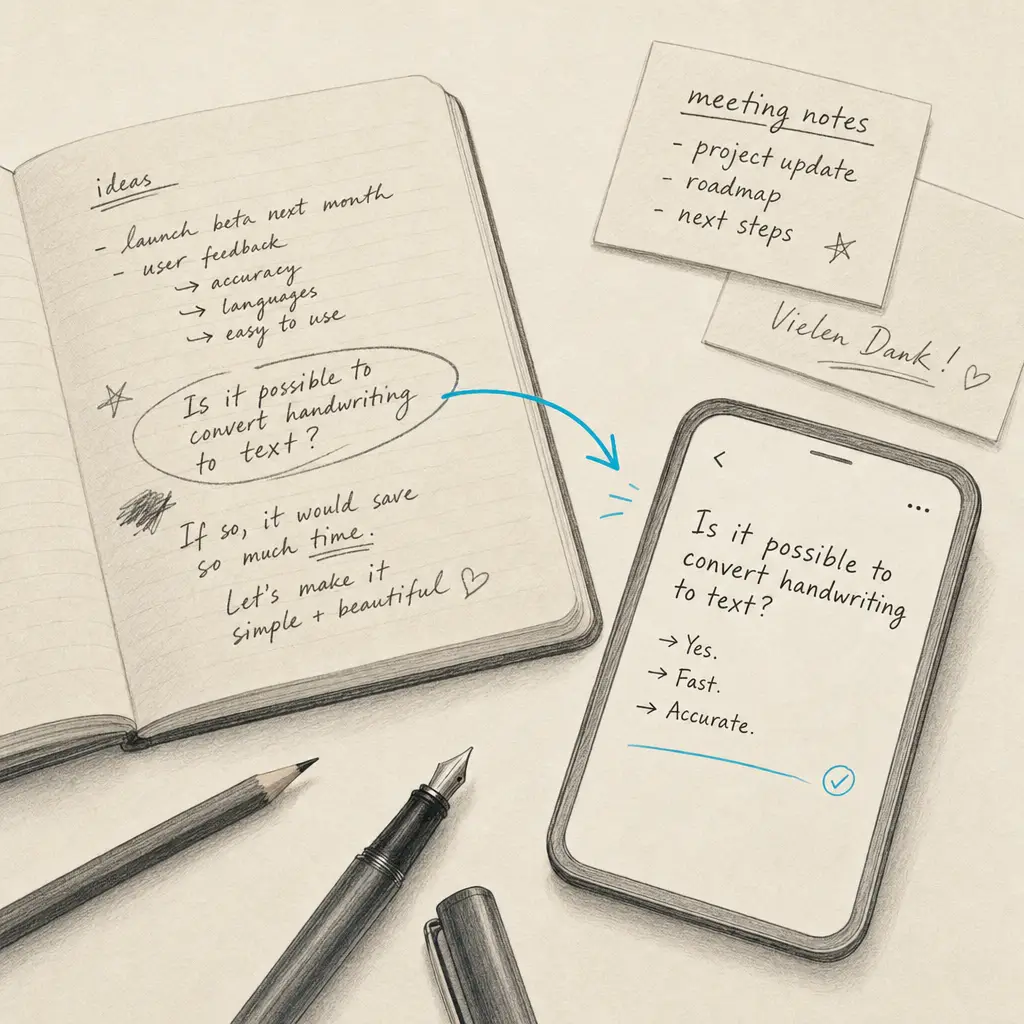 ideas
- launch beta next month
- user feedback
→ accuracy
→ languages
→ easy to use
Is it possible to
convert handwriting
to text?
If so, it would save
so much time.
Let's make it
simple + beautiful ♡
meeting notes
- project update
- roadmap
- next steps
Vielen Dank! ♡
Is it possible to
convert handwriting
to text?
→ Yes.
→ Fast.
→ Accurate.